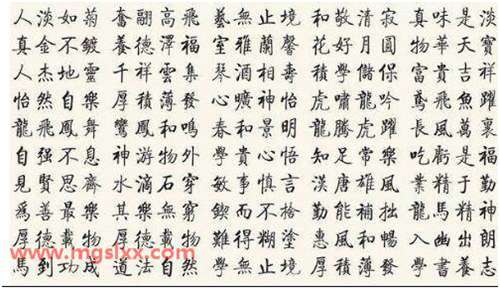 人淡如菊 奮翮高飛 藝無止境 和敬清寂 真味是淡
真金不鍍 養德澤福 室雅蘭馨 花好月圓 物華天寶
人杰地靈 千祥雲集 琴酒相壽 積學儲保 富貴吉祥
怡然自樂 厚積薄發 心曠神怡 虎嘯龍吟 鳶飛魚躍
龍飛鳳舞 鸞鳳和鳴 春和景明 龍騰虎躍 長風萬裏
自强不息 神游物外 學貴心悟 知足常樂 吃虧是福
見賢思齊 水滴石穿 敏事慎言 漢唐雄風 業精于勤
爲善最樂 其樂無窮 鍥而不捨 勤能補拙 龍馬精神
厚德載物 厚德載物 難得糊塗 惠風和暢 入幽出朗
www.mgslxx.com
馬到功成 道法自然 學無止境 厚積薄發 書養志